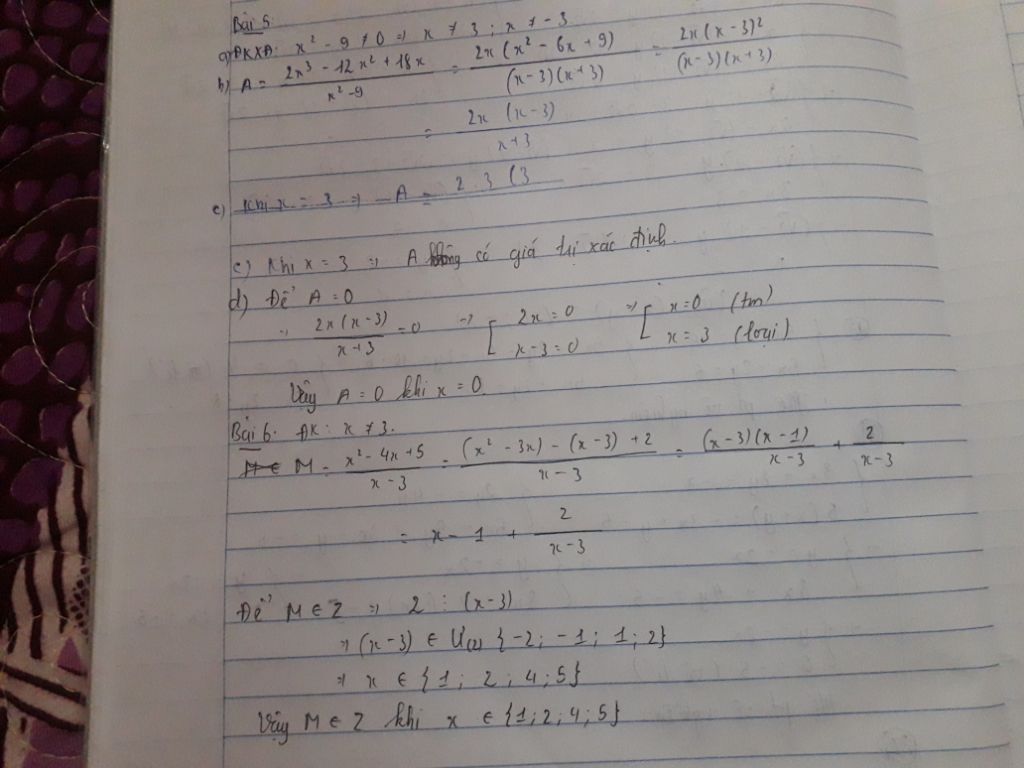 Bài 5:
a) ĐKXĐ: x² - 9 ≠ 0 => x ≠ 3 ; x ≠ -3
b) A = (2x³ - 12x² + 18x)/(x² - 9) = (2x(x² - 6x + 9))/((x-3)(x+3)) = (2x(x-3)²)/((x-3)(x+3))
= (2x (x-3))/(x+3)
c) Khi x = 3 => A = 2 3 (3
c) Khi x = 3 => A không có giá trị xác định.
d) Để A = 0
=> (2x(x-3))/(x+3) = 0 => [ 2x = 0 ; x-3 = 0 => [ x = 0 (tm) ; x = 3 (loại)
Vậy A = 0 khi x = 0
Bài 6: ĐK: x ≠ 3.
M = (x² - 4x + 5)/(x - 3) = ((x² - 3x) - (x - 3) + 2)/(x - 3) = ((x-3)(x-1))/(x-3) + 2/(x-3)
= x - 1 + 2/(x-3)
Để M ∈ Z => 2 ⋮ (x-3)
=> (x-3) ∈ Ư(2) {-2; -1; 1; 2}
=> x ∈ {1; 2; 4; 5}
Vậy M ∈ Z khi x ∈ {1; 2; 4; 5}